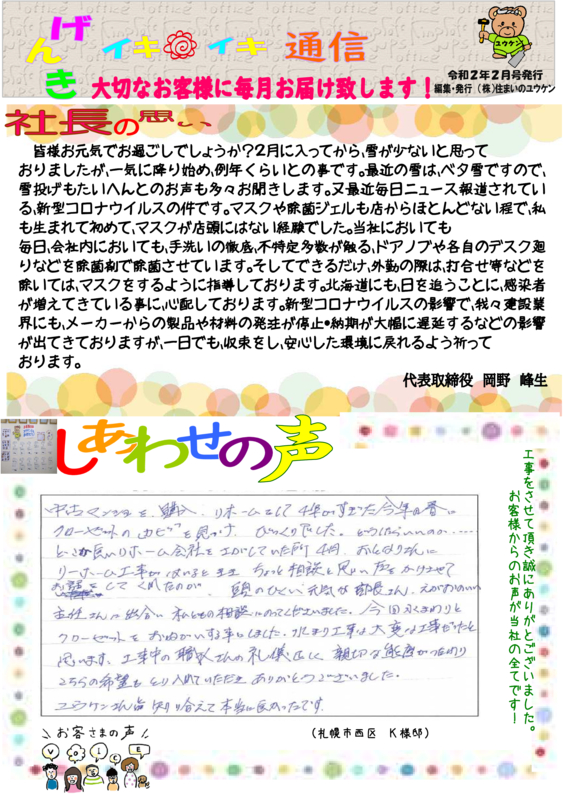 げんき イキイキ 通信
ユウケン
大切なお客様に毎月お届け致します！
令和2年2月号発行
編集・発行 （株）住まいのユウケン
社長の思い
皆様お元気でお過ごしでしょうか？2月に入ってから、雪が少ないと思って
おりましたが、一気に降り始め、例年くらいとの事です。最近の雪は、ベタ雪ですので、
雪投げもたいへんとのお声も多々お聞きします。又最近毎日ニュース報道されてい
る、新型コロナウイルスの件です。マスクや除菌ジェルも店からほとんどない程で、私
も生まれて初めて、マスクが店頭にはない経験でした。当社においても
毎日、会社内においても、手洗いの徹底、不特定多数が触る、ドアノブや各自のデスク廻
りなどを除菌剤で除菌させています。そしてできるだけ、外勤の際は、打合せ等などを
除いては、マスクをするように指導しております。北海道にも、日を追うごとに、感染者
が増えてきている事に、心配しております。新型コロナウイルスの影響で、我々建設業
界にも、メーカーからの製品や材料の発注が停止・納期が大幅に遅延するなどの影響
が出てきておりますが、一日でも、収束をし、安心した環境に戻れるよう祈って
おります。
代表取締役 岡野 峰生
しあわせの声
工事をさせて頂き誠にありがとございました。
お客様からのお声が当社の全てです！
中古マンションを購入、リホームをして4年がすぎた今年の春に
クローゼットのカビを見つけ、びっくりでした。どうしたらいいのか‥‥
どこか良いリホーム会社をさがしていた所4月、おとなりさんに
リーホーム工事が
ちょっと相談と思い、声をかけさせて
クローゼットをお願いする事にしました。水まわり工事は大変な工事だったと
思います。工事中の職人さんの礼儀正しく親切な態度
こちらの希望もとり入れていただき、ありがとうございました。
ユウケンさん皆知り合えて本当に良かったです。
お客さまの声
VOICE
（札幌市西区 K様邸）